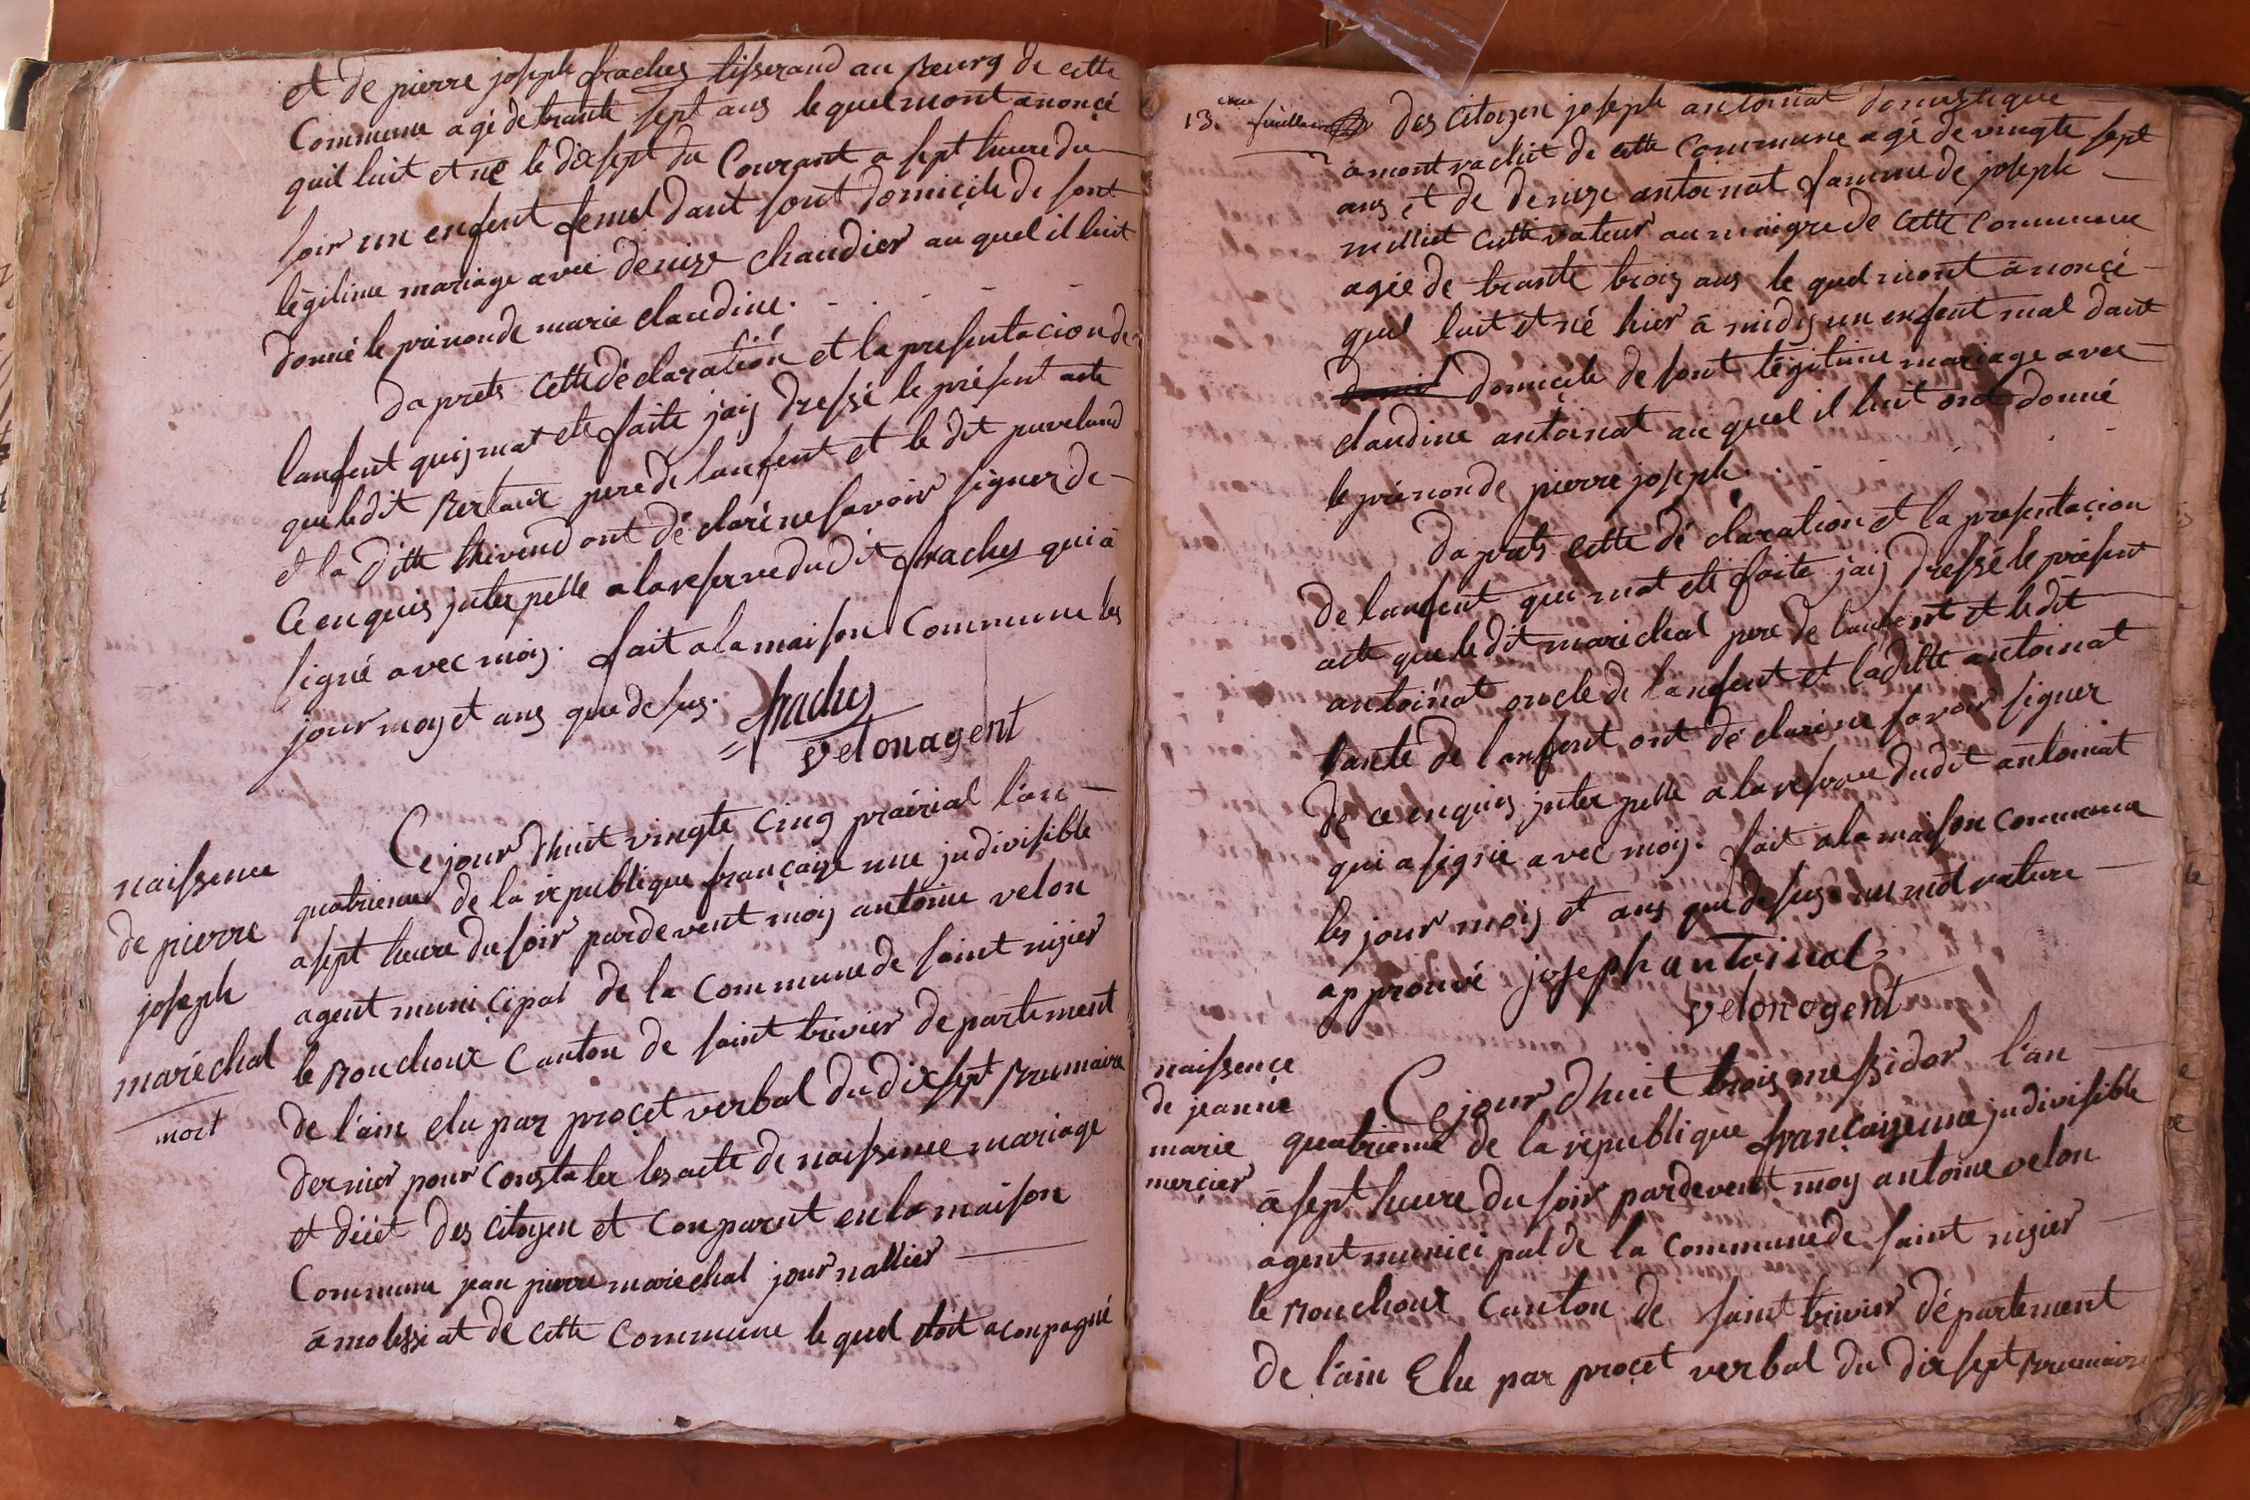 et de pierre joseph fraches tisserand au Bourg de cette
Commune agé de trante sept ans le quel mont anoncé
quil luit et né le dix sept du Courant a sept heure du
soir un enfent femel dant sont domicile de sont
légitime mariage avec denize chaudier au quel il luit
donné le prénon de marie claudine.
da prets cette déclaration et la presentacion de
lanfent quij mat ete faite jaij dressé le présent acte
que le dit Bertaux pere de lanfent et le dit
et la ditte thivend ont dé claré ne savoir signer de
Ce enquis jnter pellé a la reserve du dit fraches qui a
signé avec moij. fait a la maison Commune les
jour moy et ans que desus.
fraches
velon agent
naissence
de pierre
joseph
maréchal
mort
Ce jour dhuit vingte cinq prairial l'an
quatrieme de la république françaize une jndivisible
a sept heure du soir par devent moij antoine velon
agent municipal de la Commune de saint nizier
le Bouchoux Canton de saint trivier departement
de l'ain elu par proçet verbal du dix sept Brumaire
dernier pour constater les acte de naissence mariage
et décét des citoyen et conparut en la maison
Commune jean pierre maréchal journallier
à molissiat de cette Commune le quel étoit aconpagné
13.eme feuillet
des citoyen joseph antoinat domestique
a montrachit de cette commune agé de vingte sept
ans et de denize antoinat famme de joseph
milliet cultivateur au maigre de cette commune
agée de trante trois ans le quel mont ànoncé
quil luit et né hier à midij un enfent mal dant
domicile de sont légitime mariage avec
claudine antoinat au quel il luit ont donné
le prénon de pierre joseph.
da prets cette dé claration et la presentaçion
de lanfent qui mat ete faite jaij dressé le présent
acte que le dit maréchal pere de lanfent et le dit
antoinat oncle de lanfent et la ditte antoinat
tante de lanfent ont dé claré ne savoir signer
de ce enquis jnter pellé a la reserve du dit antoinat
qui a signé avec moij. fait a la maison commune
les jour moij et ans que desus un mot rature
approuvé joseph antoinat
velon agent
naissençe
de jeanne
marie
merçier
Ce jour dhuit trois messidor l'an
quatrieme de la république françaize une jndivisible
à sept heure du soir pardevent moy antoine velon
agent municipal de la commune de saint nizier
le Bouchoux Canton de saint trivier département
de l'ain Elu par proçet verbal du dix sept Brumaire